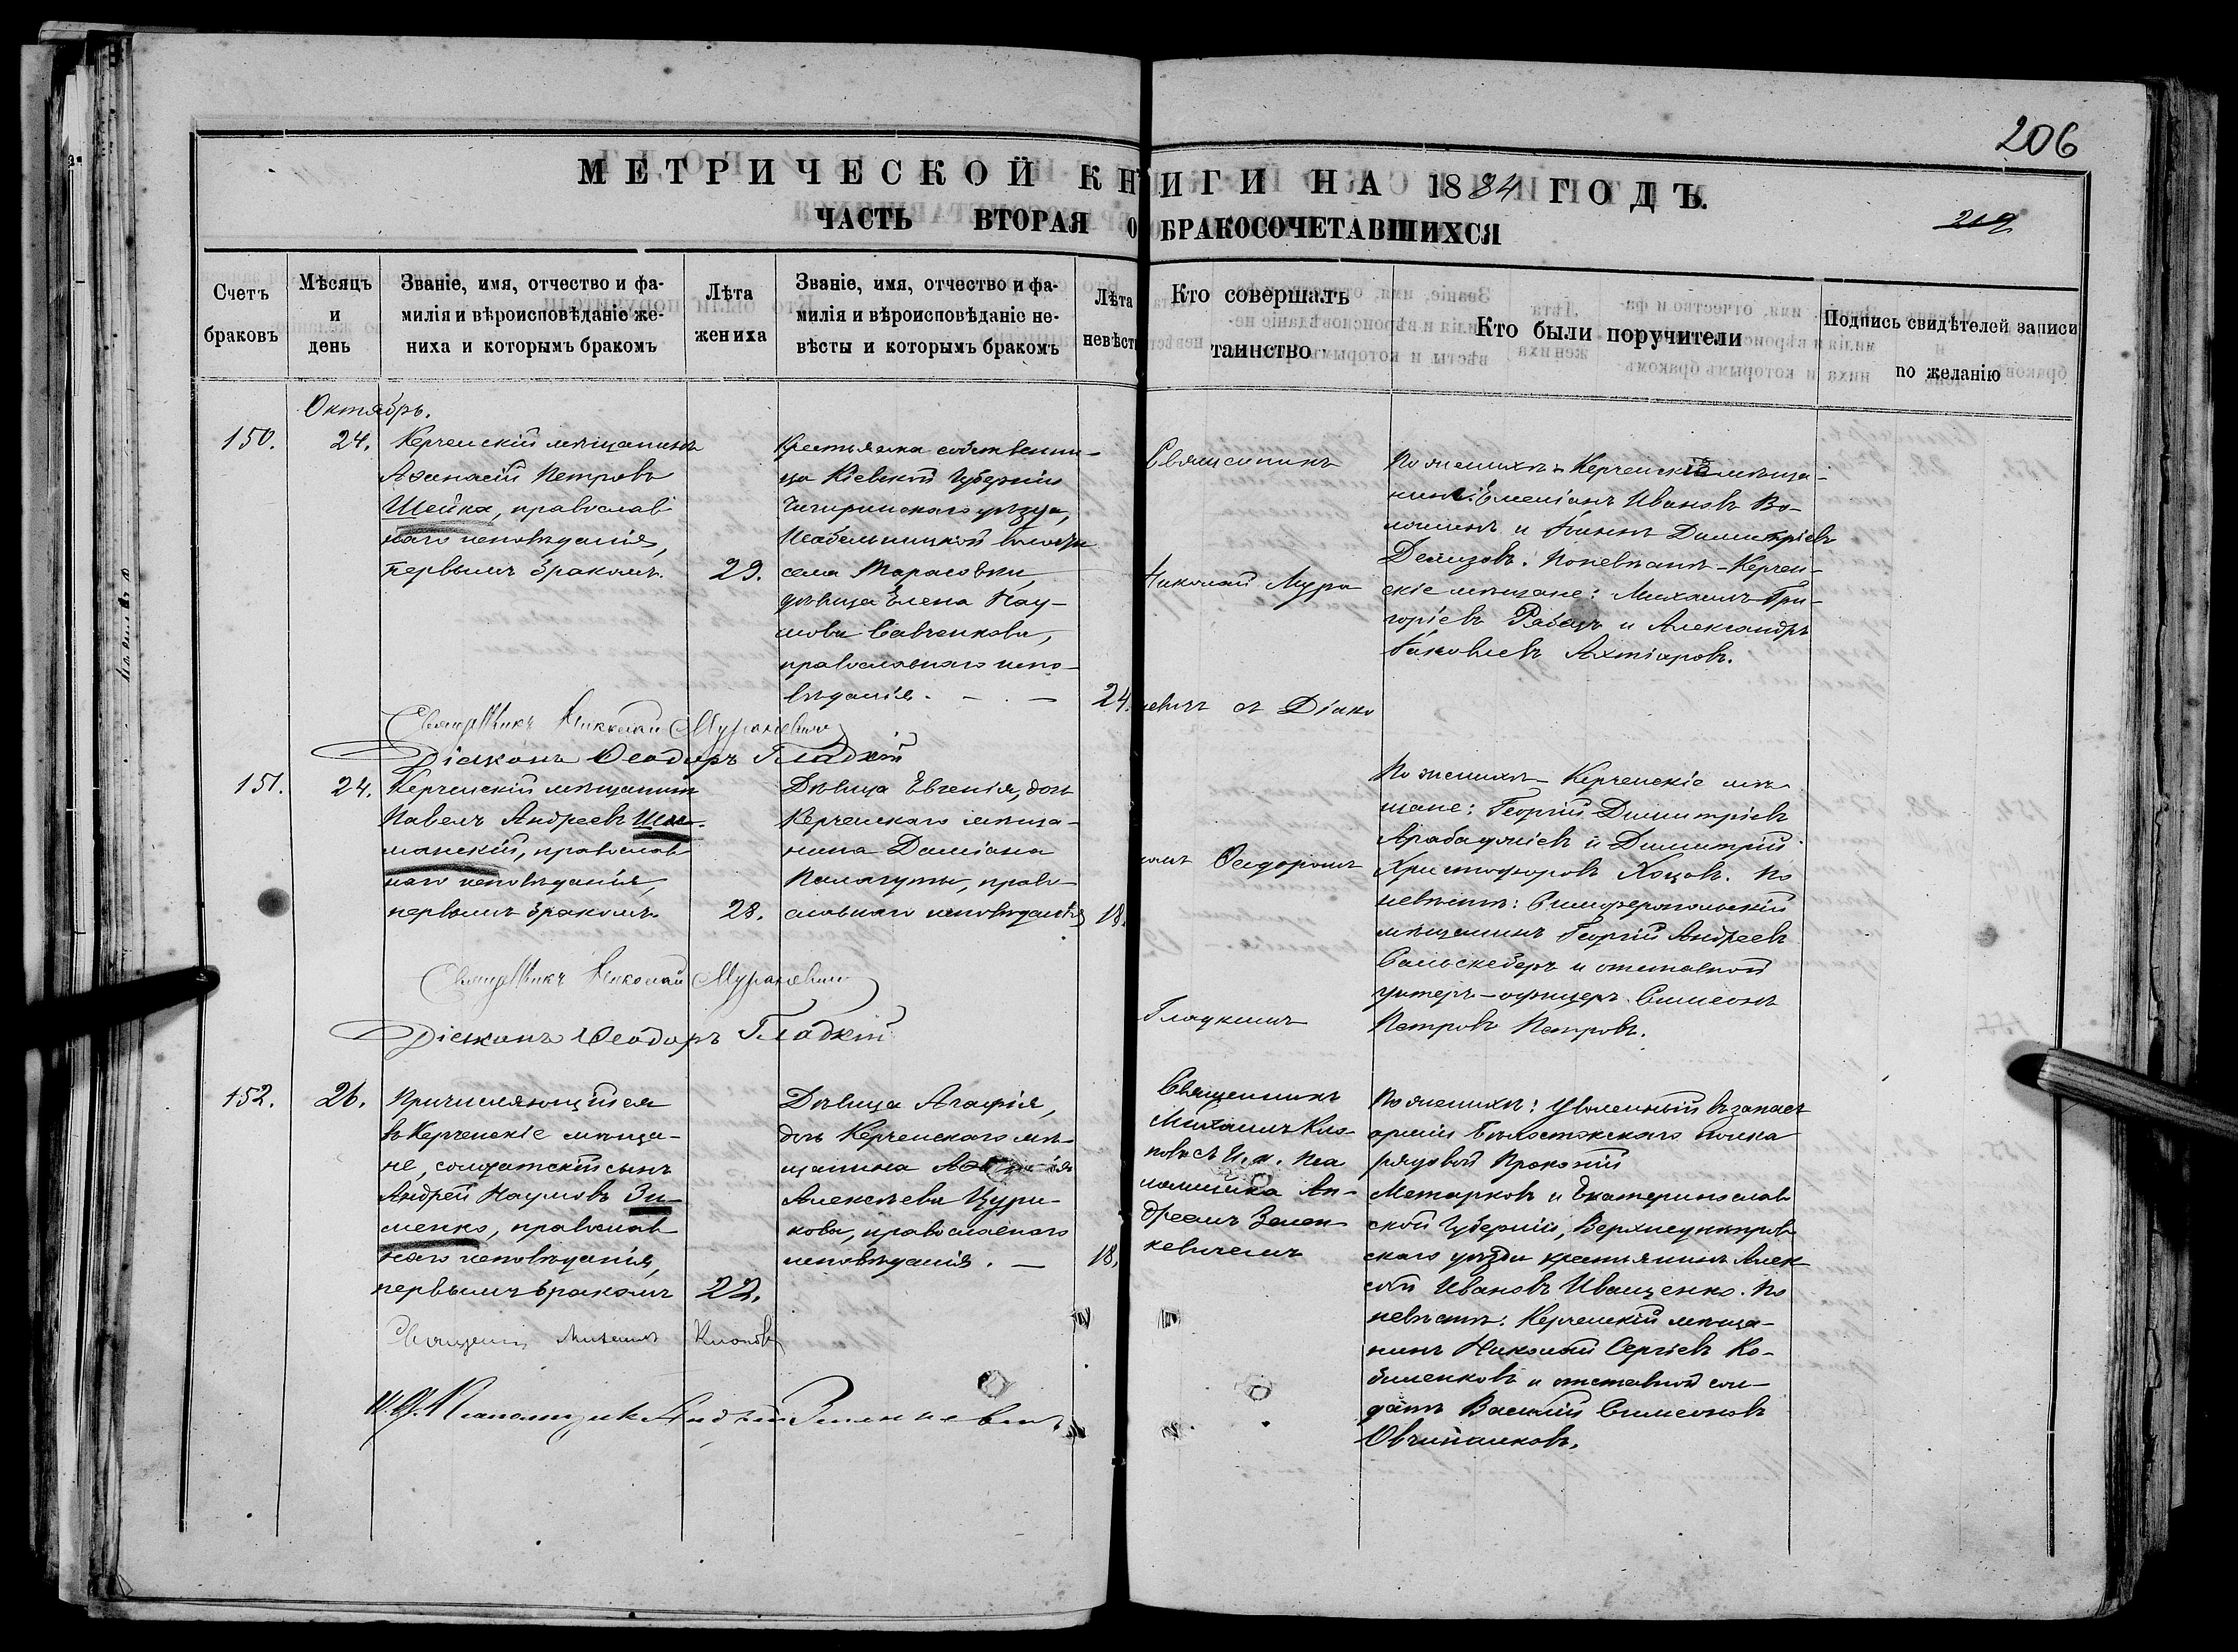 206
МЕТРИЧЕСКОЙ КНИГИ НА 1884 ГОДЪ.
ЧАСТЬ ВТОРАЯ О БРАКОСОЧЕТАВШИХСЯ
Счетъ браковъ
Мѣсяцъ и день
Званіе, имя, отчество и фа-
милія и вѣроисповѣданіе же-
ниха и которымъ бракомъ
Лѣта жениха
Званіе, имя, отчество и фа-
милія и вѣроисповѣданіе не-
вѣсты и которымъ бракомъ
Лѣта невѣсты
Кто совершалъ
таинство
Кто были поручители
Подпись свидѣтелей записи
по желанію
Октябрь.
150.
24.
Керченскій мѣщанинъ
Аѳанасій Петровъ
Шейка, православ
наго исповѣданія,
первымъ бракомъ.
29.
Крестьянка собственни-
ца Кіевской Губерніи
Чигиринскаго уѣзда,
волости
села Тарасовки,
дѣвица Елена Нау-
мова Савченкова,
православнаго испо-
вѣданія. - . -
24.
Священникъ
Николай Мура
невичъ съ Діако
По женихѣ - Керченскіе мѣща-
Емеліанъ Ивановъ Во-
лошинъ и Димитріевъ
По невѣстѣ - Керчен-
скіе мѣщане: Михаилъ Гри-
горіевъ Рабецъ и Александръ
Яковлевъ Ахтіаровъ.
Священникъ Николай Мураневичъ
Діаконъ Ѳеодоръ Гладкій
151.
24.
Керченскій мѣщанинъ
Павелъ Андреевъ Ши-
манскій, православ
наго исповѣданія,
первымъ бракомъ.
28.
Дѣвица Евгенія, дочь
Керченскаго мѣща-
нина Даміана
Палагуты, право-
славнаго исповѣданія
18.
номъ Ѳеодоромъ
Гладкимъ
По женихѣ - Керченскіе мѣ
щане: Георгій Димитріевъ
Арабаджіевъ и Димитрій
Христофоровъ Хоцовъ. По
невѣстѣ: Симферопольскій
мѣщанинъ Георгій Андреевъ
и отставной
унтеръ-офицеръ Симеонъ
Петровъ Петровъ.
Священникъ Николай Мураневичъ
Діаконъ Ѳеодоръ Гладкій
152.
26.
Причисляющійся
въ Керченскіе мѣща-
не, солдатскій сынъ
Андрей Наумовъ Зи-
менко, православ
наго исповѣданія,
первымъ бракомъ
22.
Дѣвица Агафія,
дочь Керченскаго мѣ-
щанина
Алексѣева Цури-
кова, православнаго
исповѣданія. -
18.
Священникъ
Михаилъ Кло-
повъ съ И. д. Пса
ломщика Ан-
дреемъ Зелен
кевичемъ
По женихѣ: Уволенный въ запасъ
арміи Бѣлостокскаго полка
рядовой Прокопій
и Екатеринослав
ской Губерніи, Верхнеднѣпров
скаго уѣзда крестьянинъ Алек
сѣй Ивановъ Иващенко. По
невѣстѣ: Керченскій мѣща-
нинъ Николай Сергіевъ Ко-
биленковъ и отставной сол-
датъ Василій Симеоновъ
Овчинниковъ.
Священ. Михаилъ Клоповъ
И. д. Псаломщика Андрей Зеленкевичъ